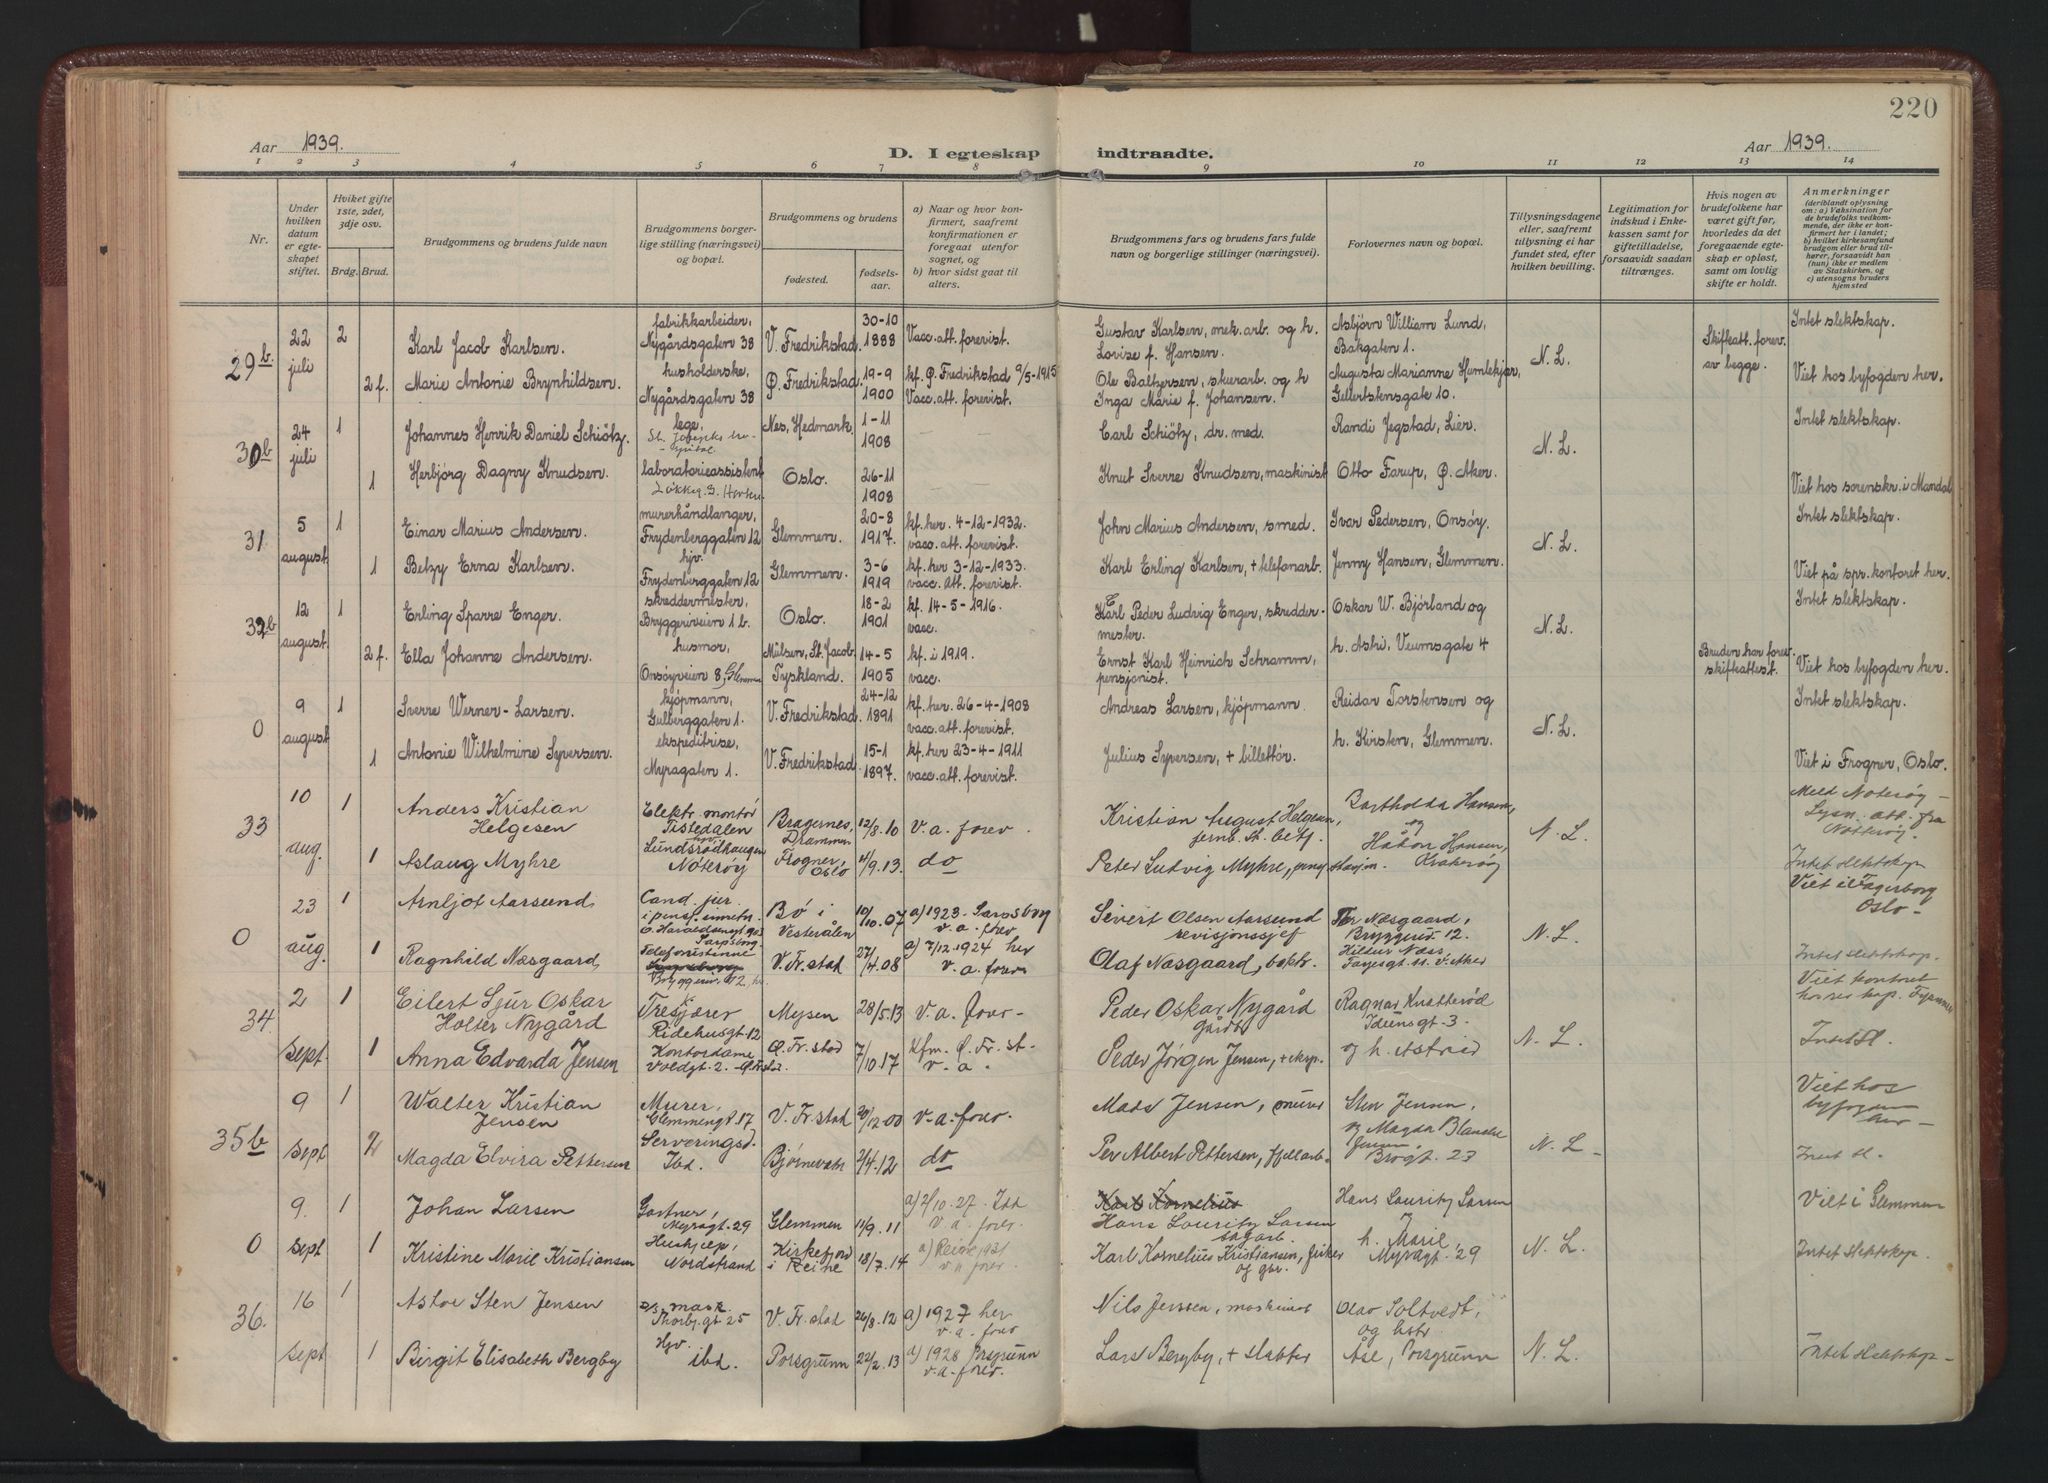 220
Aar 1939.
D. I egteskap indtraadte.
Aar 1939.
1 2 3 4 5 6 7 8 9 10 11 12 13 14
Nr.
Under hvilken datum er egteskapet stiftet.
Hviket gifte 1ste, 2det, 3dje osv.
Brdg. Brud.
Brudgommens og brudens fulde navn
Brudgommens borgerlige stilling (næringsvei) og bopæl.
Brudgommens og brudens
fødested.
fødselsaar.
a) Naar og hvor konfirmert, saafremt konfirmationen er foregaat utenfor sognet, og
b) hvor sidst gaat til alters.
Brudgommens fars og brudens fars fulde navn og borgerlige stillinger (næringsvei).
Forlovernes navn og bopæl.
Tillysningsdagene eller, saafremt tillysning ei har fundet sted, efter hvilken bevilling.
Legitimation for indskud i Enkekassen samt for giftetilladelse, forsaavidt saadan tiltrænges.
Hvis nogen av brudefolkene har været gift før, hvorledes da det foregaaende egteskap er opløst, samt om lovlig skifte er holdt.
Anmerkninger
(deriblandt oplysning om: a) Vaksination for de brudefolks vedkommende, der ikke er konfirmert her i landet; b) hvilket kirkesamfund brudgom eller brud tilhører, forsaavidt han (hun) ikke er medlem av Statskirken, og c) utensogns bruders hjemsted
29b 22 juli 2 Karl Jacob Karlsen. fabrikkarbeider, Nygårdsgaten 38 V. Fredrikstad. 30-10 1888 Vacc. att. forevist. Gustav Karlsen, mek. arb. og h. Lovise f. Hansen. Asbjörn William Lund, Bakgaten 1. N. L. Skifteatt. forev. av begge. Intet slektskap.
2 f. Marie Antonie Brynhildsen. husholderske, Nygårdsgaten 38 Ø. Fredrikstad. 19-9 1900 kf. Ø. Fredrikstad 9/5-1915 Vacc. att. forevist. Ole Baltzersen, skuerarb. og h Inga Marie f. Johansen. Augusta Marianne Humlekjær, Gellertstensgate 10. Viet hos byfogden her.
30b 24 juli 1 Johannes Henrik Daniel Schiötz. lege, St. Josephs Nes, Hedmark. 1-11 1908 Carl Schiötz, dr. med. Randi Jegstad, Lier. N. L. Intet slektskap.
1 Herbjörg Dagny Knudsen. laboratorieassistent Oslo. 26-11 1908 Knut Sverre Knudsen, maskinist Otto Farup, Ø. Aker. Viet hos sorenskr. i Mandal
31. 5 august 1 Einar Marius Andersen. murerhåndlanger, Frydenberggaten 12 Glemmen. 20-8 1917. kf. her. 4-12-1932. vacc. att. forevist. John Marius Andersen, smed. Ivar Pedersen, Onsöy. N. L. Intet slektskap.
1 Betzy Erna Karlsen. hjv. Frydenberggaten 12 Glemmen. 3-6 1919 kf. her 3-12-1933. vacc. att. forevist. Karl Erling Karlsen, + telefonarb. Jenny Hansen, Glemmen. Viet på spr. kontoret her.
32b 12 august 1 Erling Sparre Enger. skreddermester, Bryggeriveien 1 b. Oslo. 18-2 1901 kf. 14-5-1916. vacc. Karl Peder Ludvig Enger, skreddermester. Oskar W. Björland og N. L. Intet slektskap.
2 f. Ella Johanne Andersen. husmor, Onsöyveien 8, Glemmen Mülsen, St. Jacob Tyskland. 14-5 1905 kf. i 1919. vacc. Ernst Karl Heinrich Schramm, pensjonist. h. Astri, Veumsgate 4 Bruden har forev. skifteattest. Viet hos byfogden her.
0 9 august 1 Sverre Werner-Larsen. kjöpmann, Gulberggaten 1. V. Fredrikstad 24-12 1891 kf. her. 26-4-1908 vacc. att. forevist. Andreas Larsen, kjöpmann. Reidar Torstensen og N. L. Intet slektskap.
1 Antonie Wilhelmine Syversen. ekspeditrise, Myragaten 1. V. Fredrikstad. 15-1 1897. kf. her 23-4-1911 vacc. att. forevist. Julius Syversen, + billettör. h. Kirsten, Glemmen. Viet i Frogner, Oslo.
33 10 aug. 1 Anders Kristian Helgesen Elektr. montör Tistedalen Bragernes, Drammen 12/8.10 v. a. forev. Kristian August Helgesen, jernb. st. betj. Bartholda Hansen, og N. L. Meld Noterøy - Lysn. att. fra Nötterøy.
1 Aslaug Myhre Lundsrödhaugen Noterøy Frogner, Oslo 4/9.13. do Peter Ludvig Myhre, Håkon Hansen, Kråkerøy Intet slektskap
0 23 aug. 1 Arnljot Aarsund Cand. jur. Sarpsborg. Bö i Vesterålen 10/10.07 a) 1923. Sarpsborg v. a. forev Sivert Olsen Aarsund revisjonssjef Næsgaard, 12. N. L. Viet i Fagerborg Oslo -
1 Ragnhild Næsgaard Telefonistinne V. Fr. stad 27/4.08 a) 7/12.1924 her v. a. forev Olaf Næsgaard, Hildur Næss Intet slektskap.
34. 2 Sept. 1 Eilert Sjur Oskar Holter Nygård Ridehusgt 12 Mysen 28/5.13 v. a. forev. Peder Oskar Nygård gårdbr Ragnar Knatteröd Idunsgt. 3. N. L. Viet kontret
1 Anna Edvarda Jensen Kontordame Voldgt. 2. Ø. Fr. stad 7/10.17 Kfm. Ø. Fr. st. v. a. Peder Jörgen Jensen, + eksp. og h. Astrid Intet sl.
35b 9 Sept 1 Walter Kristian Jensen Murer, Glemmengt. 17 V. Fr. stad 20/12.00 v. a. forev. Mads Jensen, murer Sten Jensen, N. L. Viet hos byfogden her -
2 Magda Elvira Pettersen Serveringsd. Ibd. Björnevatn 2/4.12 do Per Albert Pettersen, fjellarb. og Magda Blanche Jensen, Brogt. 23 Intet sl.
0 9. Sept 1 Johan Larsen Gartner, Myragt. 29 Glemmen 11/9.11 a) 2/10.27. Ibd v. a. forev. Karl Kornelius Hans Lauritz Larsen sagarb. Hans Lauritz Larsen N. L. Viet i Glemmen
1 Kristine Marie Kristiansen Hushjelp, Nordstrand Kirkefjord i Reine 18/7.14 a) Reine 1931 v. a. forev. Karl Kornelius Kristiansen, fisker og gbr. h. Marie Myragt. 29 Intet slektskap.
36. 16 Sept 1 Astor Sten Jensen mask. Thorbj. gt. 25 V. Fr. stad 26/8.12 a) 1927 her v. a. forev Nils Jensen, maskinist Olav Soltvedt, og hstr. N. L.
1 Birgit Elisabeth Bergby Hjv. ibd. Porsgrunn 22/2.13 a) 1928 Porsgrunn v. a. forev. Lars Bergby, + slakter Åse, Porsgrunn Intet slektskap -